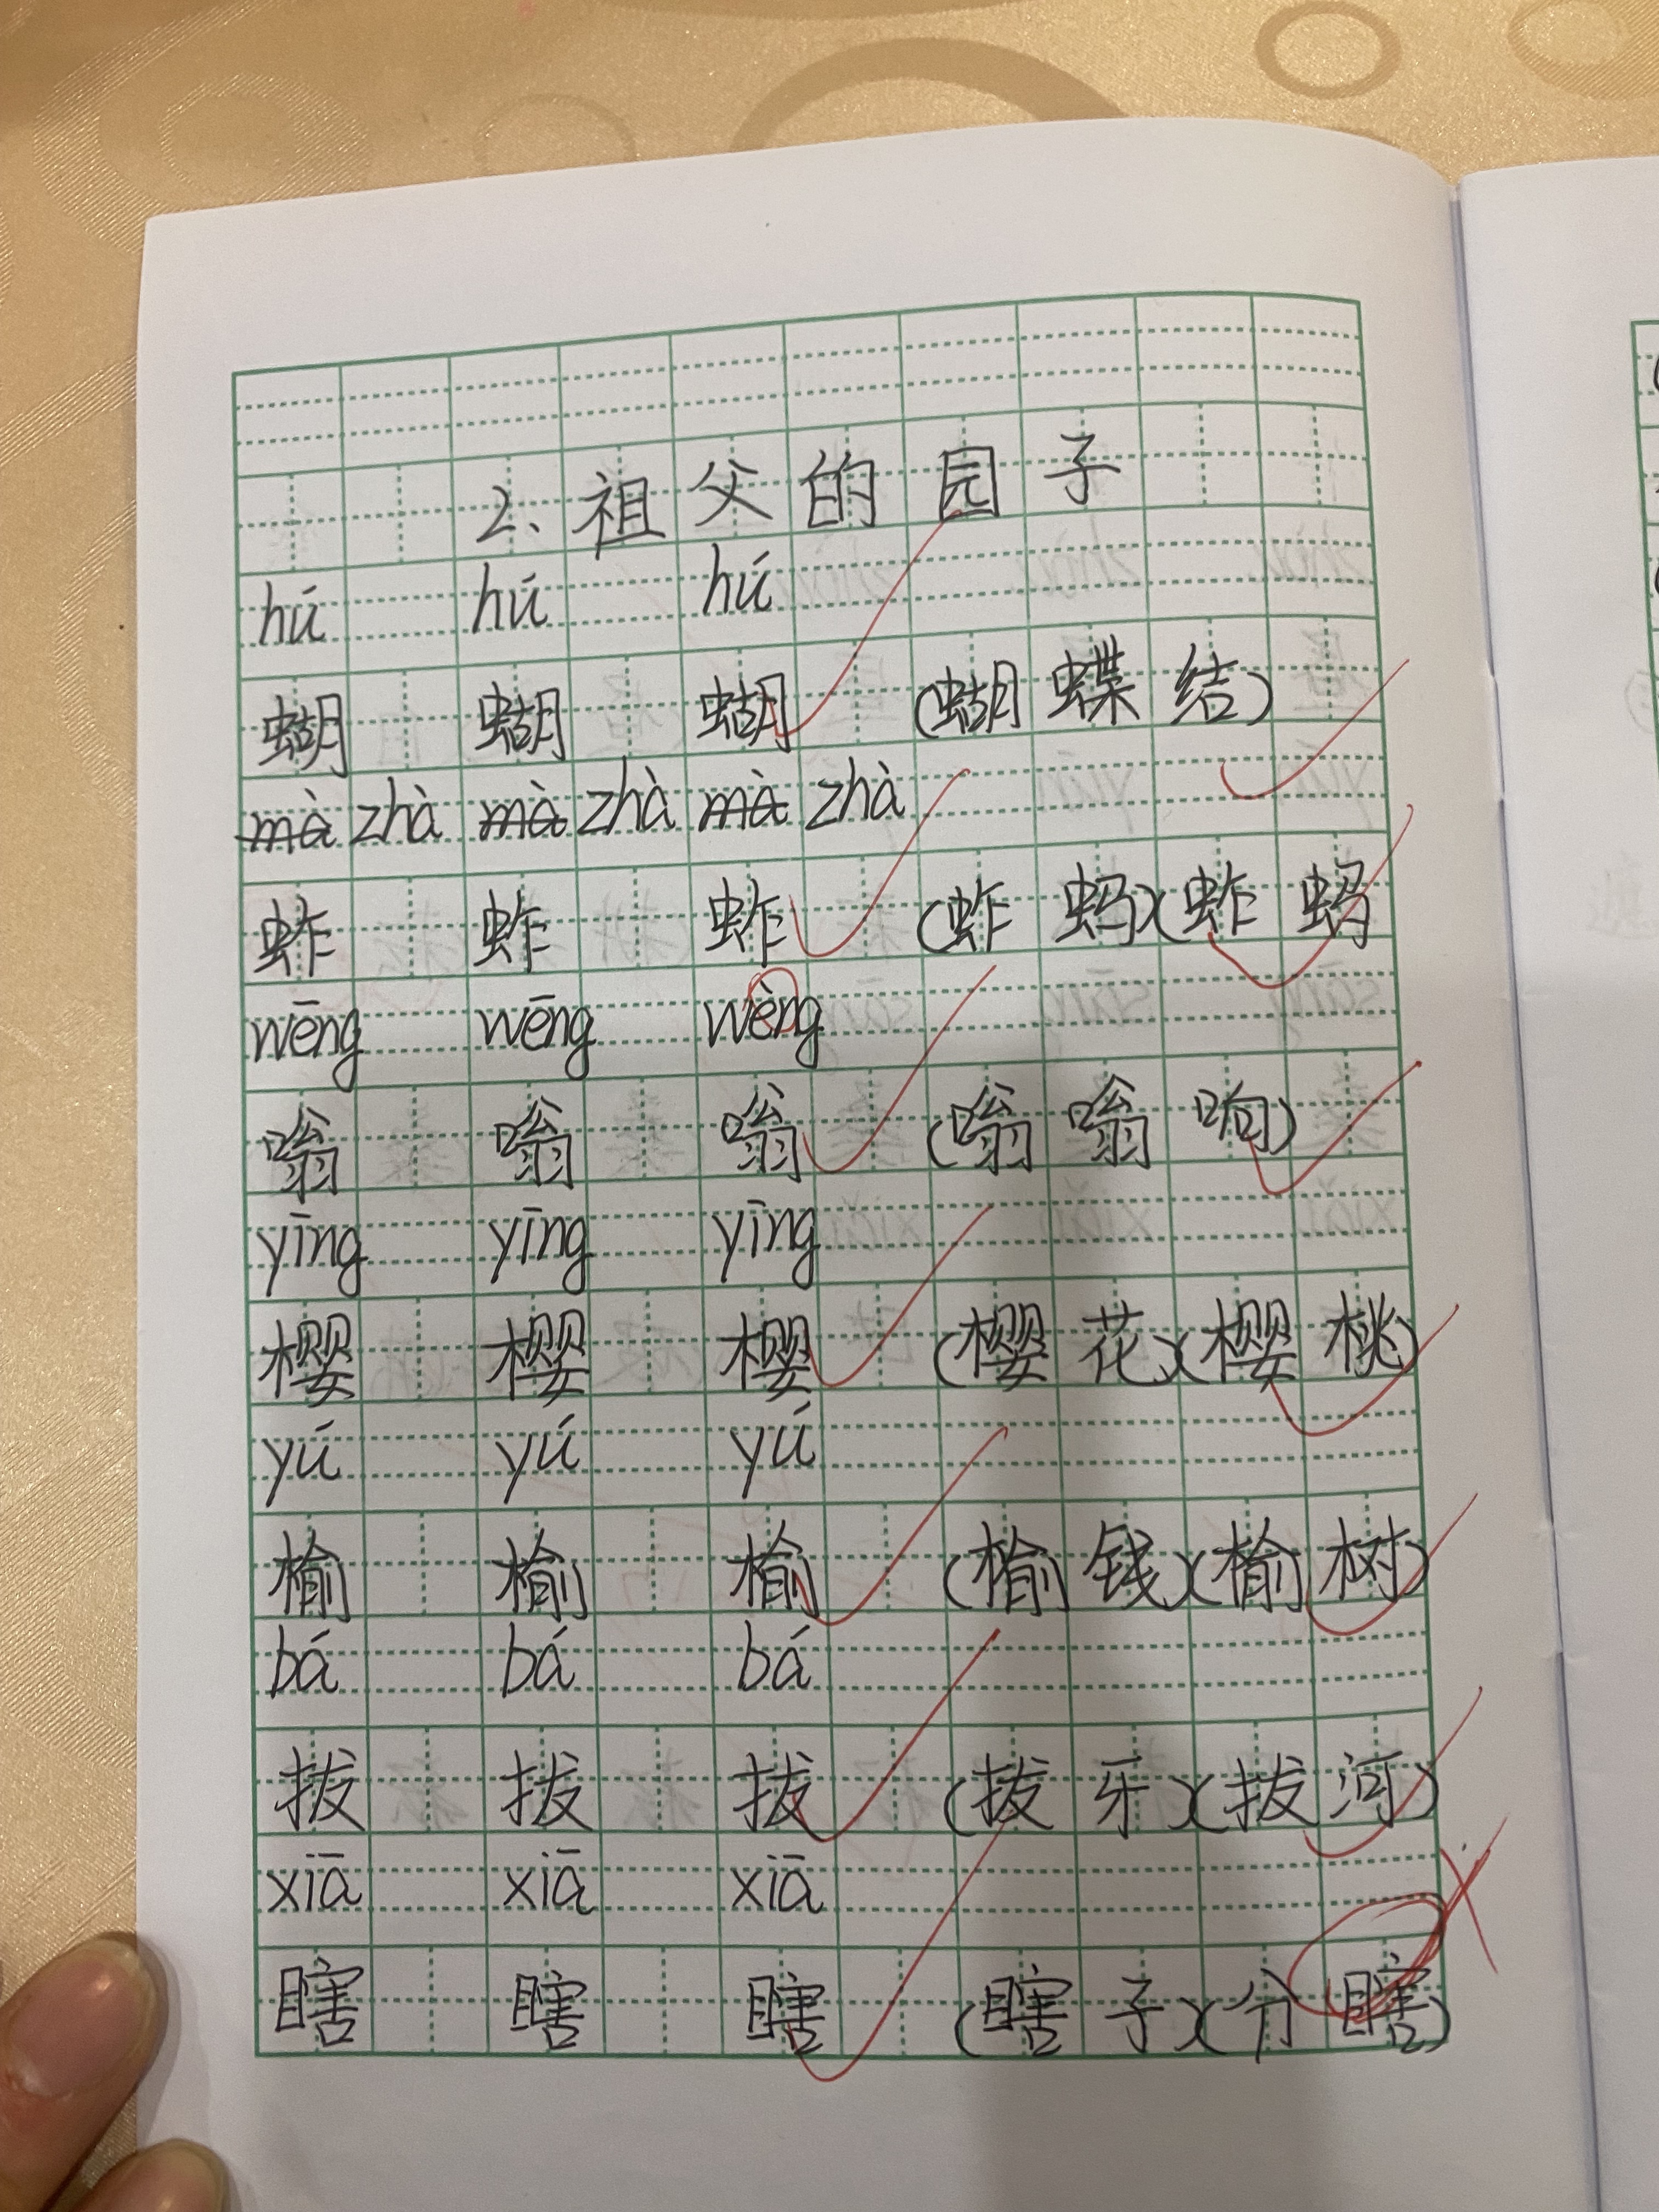 2、祖父的园子
hú hú hú
蝴 蝴 蝴 (蝴蝶结)
mà zhà mà zhà mà zhà
蚱 蚱 蚱 (蚱蚂)(蚱蚂
wēng wēng wèng
嗡 嗡 嗡 (嗡嗡响)
yīng yīng yīng
樱 樱 樱 (樱花)(樱桃)
yú yú yú
榆 榆 榆 (榆钱)(榆树)
bá bá bá
拔 拔 拔 (拔牙)(拔河)
xiā xiā xiā
瞎 瞎 瞎 (瞎子)( 瞎)